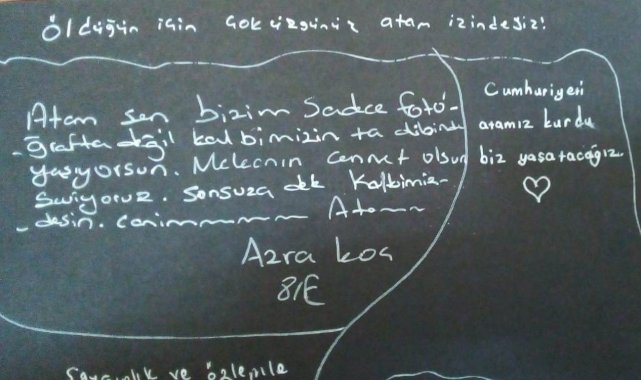 Öldüğün için çok üzgünüz atam izindeyiz!
Atam sen bizim sadece foto-
ğrafta değil kalbimizin ta dibinde
yaşıyorsun. Mekanın cennet olsun
Seviyoruz. Sonsuza dek Kalbimiz-
desin. canımmmmmm Atam
Azra koç
8/E
Cumhuriyeti
atamız kurdu
biz yaşatacağız
Saygınlık ve özlemle